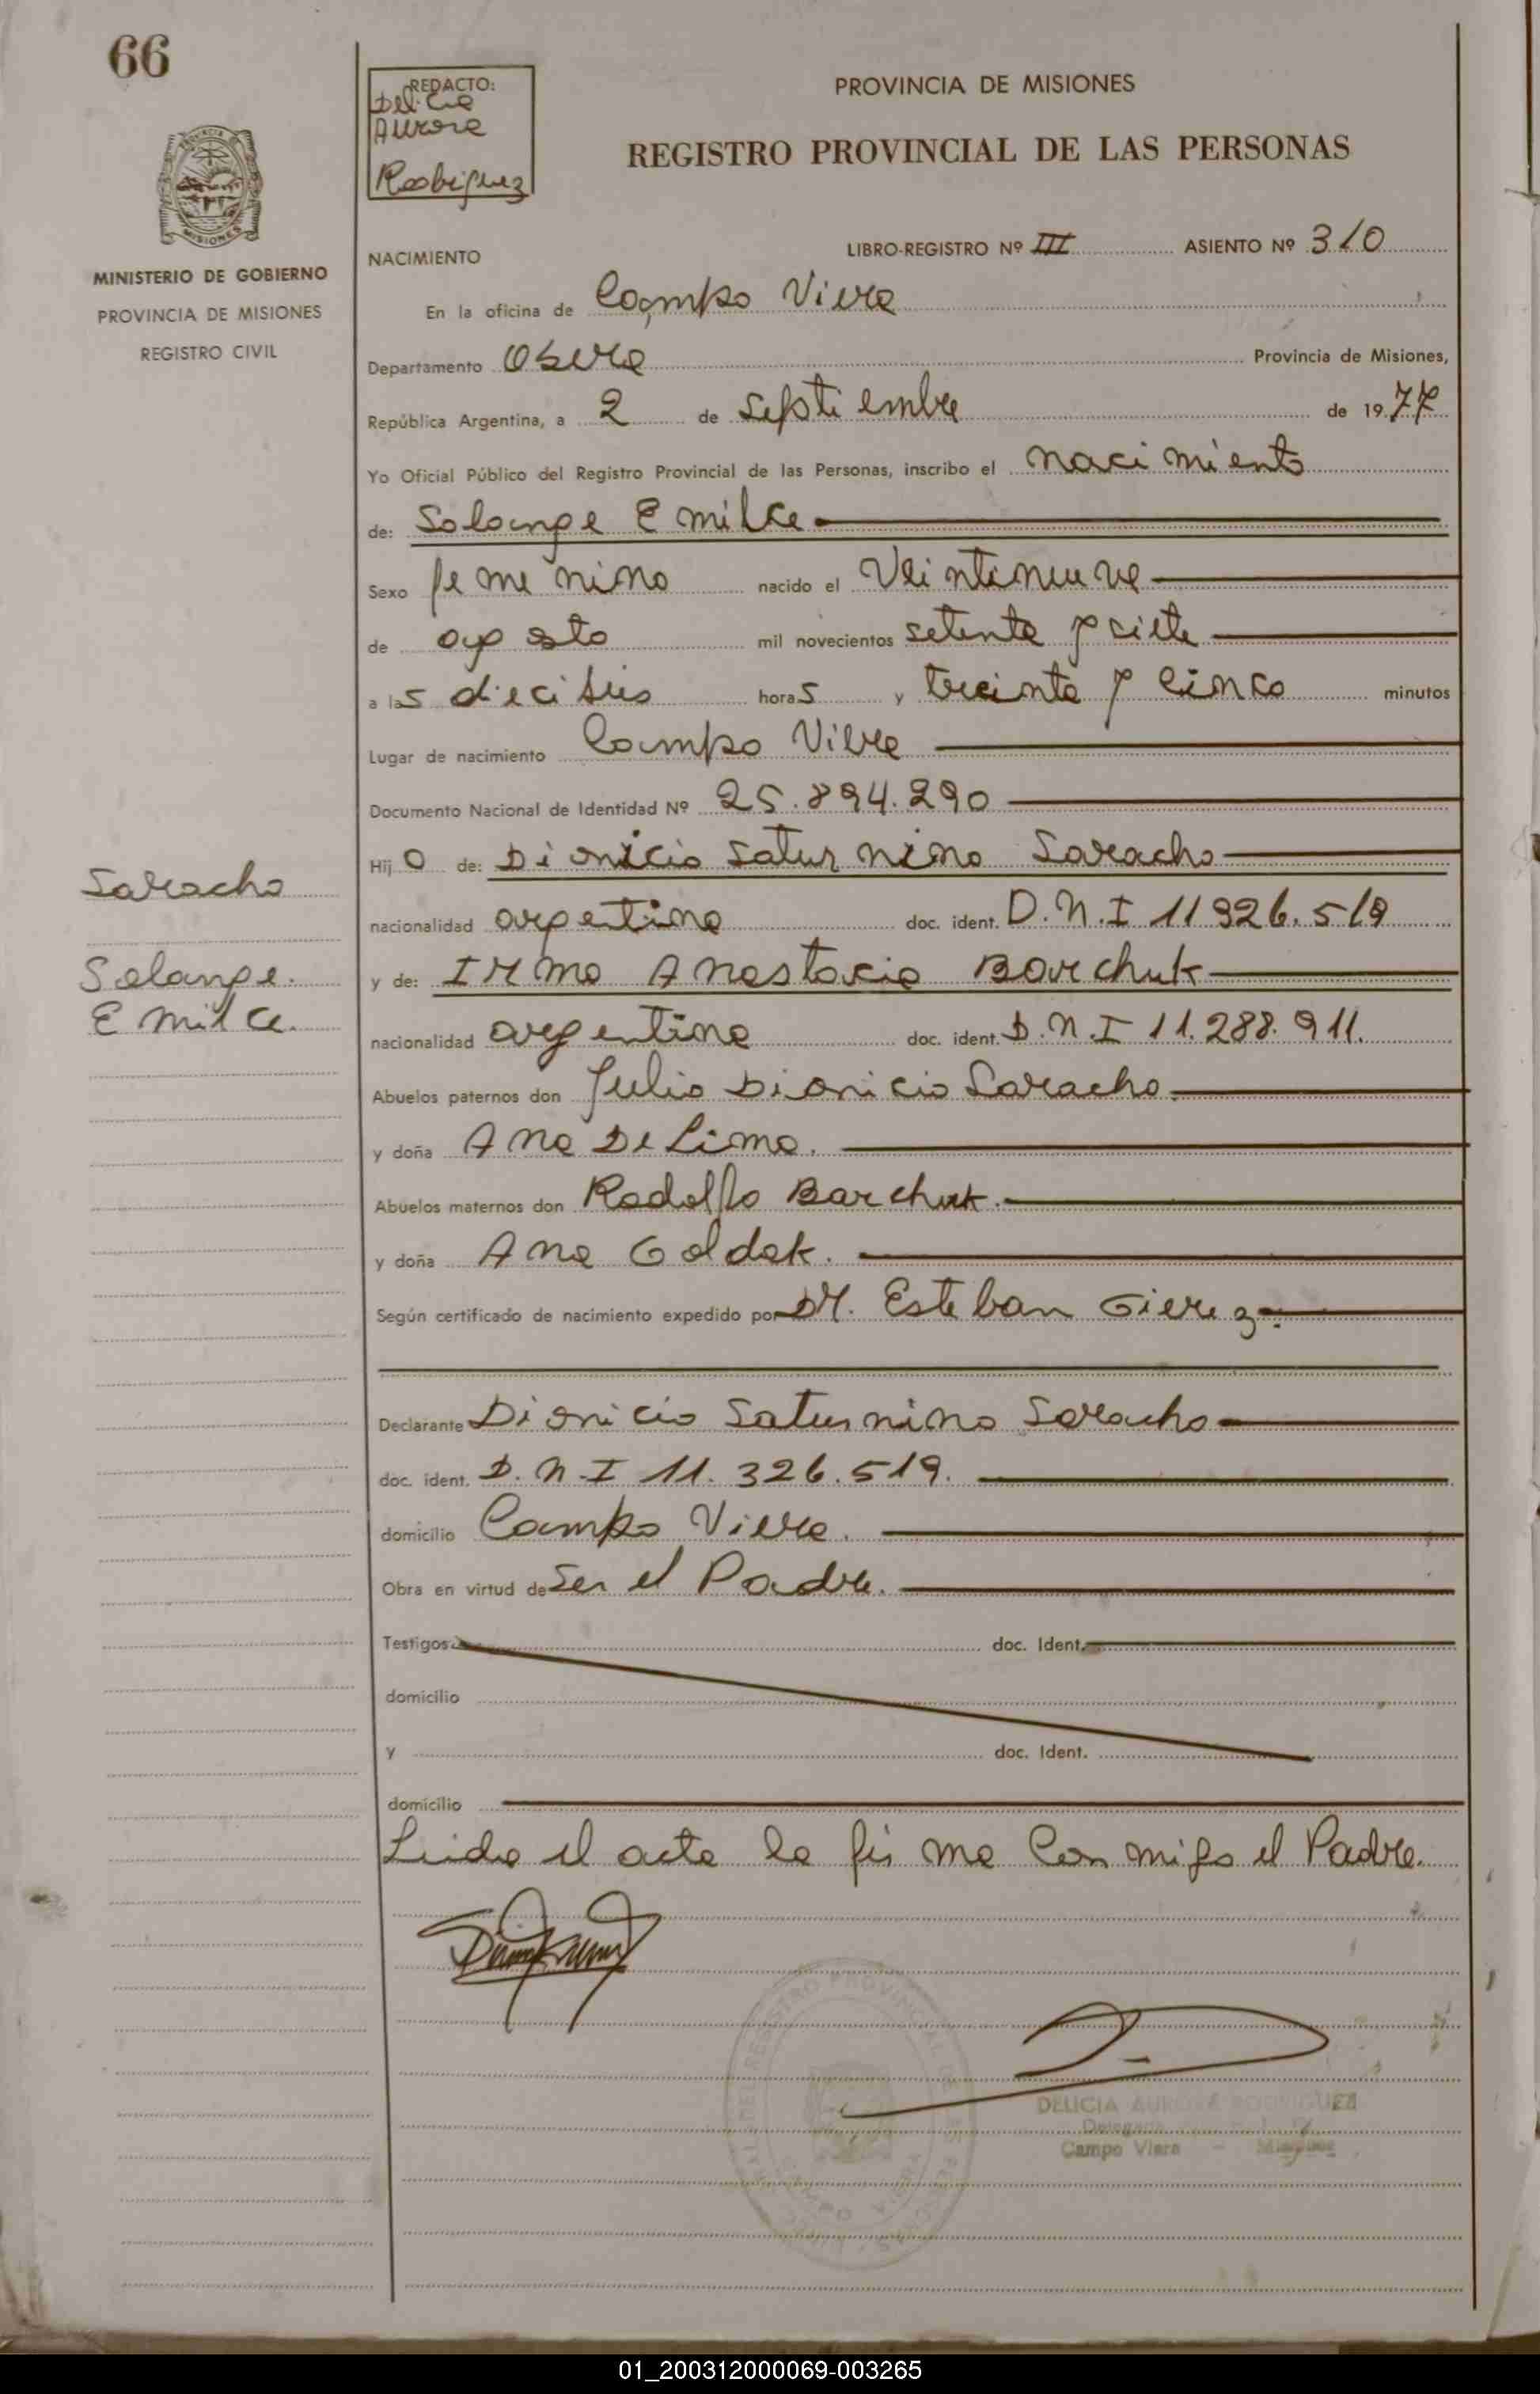 66
REDACTO:
Delicia
Aurora
Rodriguez
PROVINCIA DE MISIONES
REGISTRO PROVINCIAL DE LAS PERSONAS
PROVINCIA
MISIONES
MINISTERIO DE GOBIERNO
PROVINCIA DE MISIONES
REGISTRO CIVIL
NACIMIENTO
LIBRO-REGISTRO Nº III ASIENTO Nº 310
En la oficina de Campo Viera
Departamento Obera Provincia de Misiones,
República Argentina, a 2 de septiembre de 1977
Yo Oficial Público del Registro Provincial de las Personas, inscribo el nacimiento
de: Solange Emilce
Sexo femenino nacido el Veintenueve
de agosto mil novecientos setenta y siete
a las dieciseis horas y treinta y cinco minutos
Lugar de nacimiento Campo Viera
Documento Nacional de Identidad Nº 25.894.290
Hijo de: Dionicio Saturnino Saracho
nacionalidad argentino doc. ident. D.N.I 11 326.519
y de: Irma Anastacia Barchuk
nacionalidad argentina doc. ident. D.N.I 11.288.911.
Abuelos paternos don Julio Dionicio Saracho
y doña Ana De Lima.
Abuelos maternos don Rodolfo Barchuk.
y doña Ana Goldak.
Según certificado de nacimiento expedido por Dr. Esteban Gierez
Saracho
Solange.
Emilce.
Declarante Dionicio Saturnino Saracho
doc. ident. D.N.I 11.326.519.
domicilio Campo Viera.
Obra en virtud de Ser el Padre.
Testigos doc. Ident.
domicilio
y doc. Ident.
domicilio
Leida el acta la firma conmigo el Padre.
DELICIA AURORA RODRIGUEZ
Delegada
Campo Viera - Misiones
01_200312000069-003265